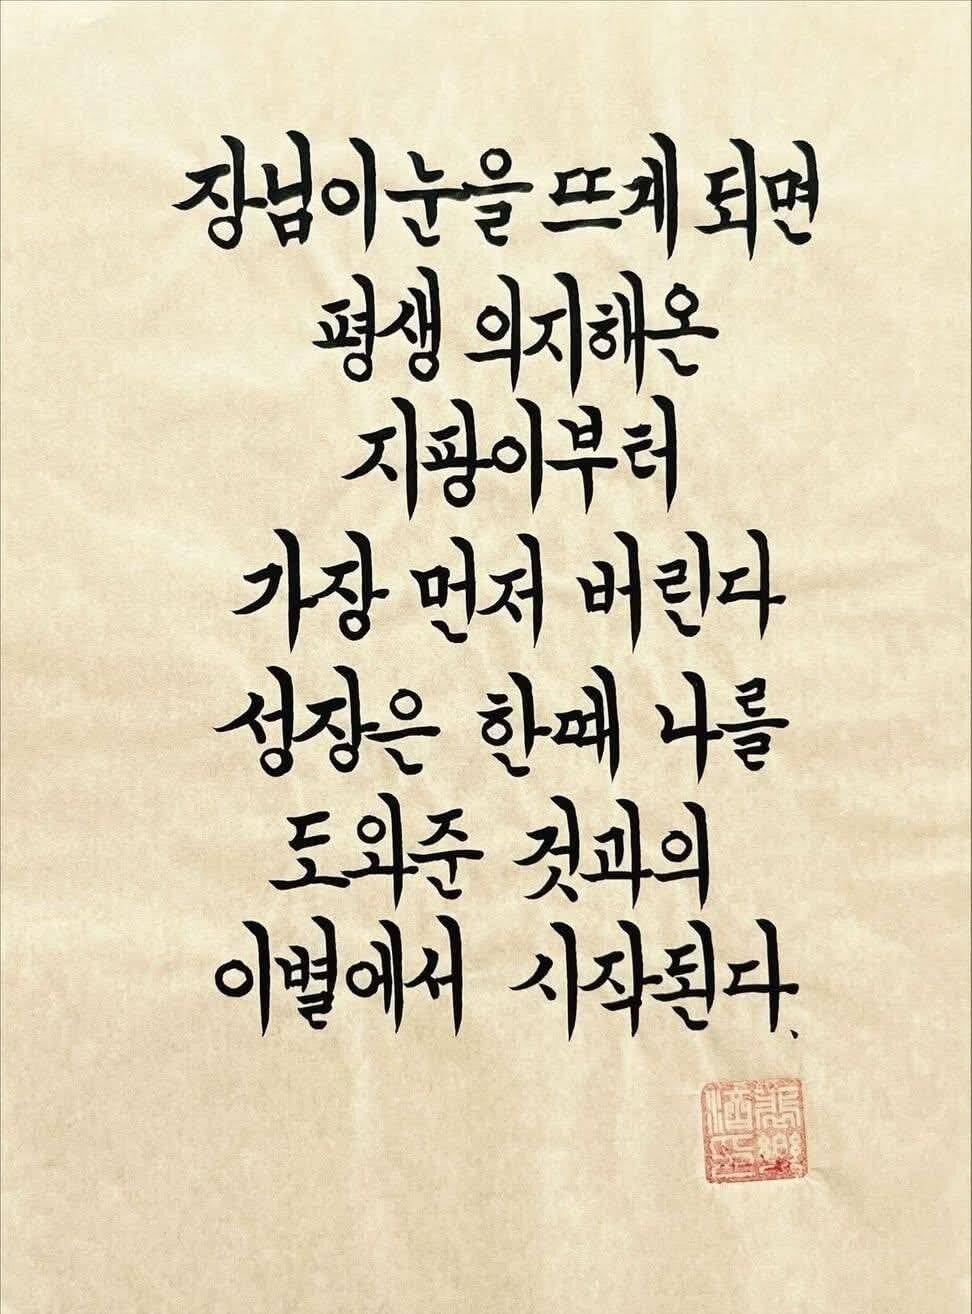 장님이 눈을 뜨게 되면
평생 의지해온
지팡이부터
가장 먼저 버린다
성장은 한때 나를
도와준 것과의
이별에서 시작된다.